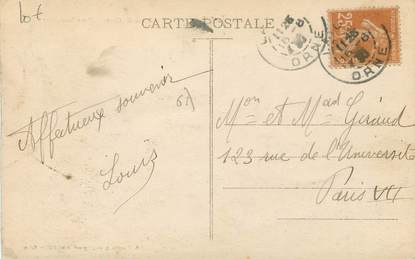 lot
CARTE POSTALE
ORNE
ORNE
25c
Affectueux souvenir
61
Louis
Mon et Mad Giraud
123 rue de l'Université
Paris VII